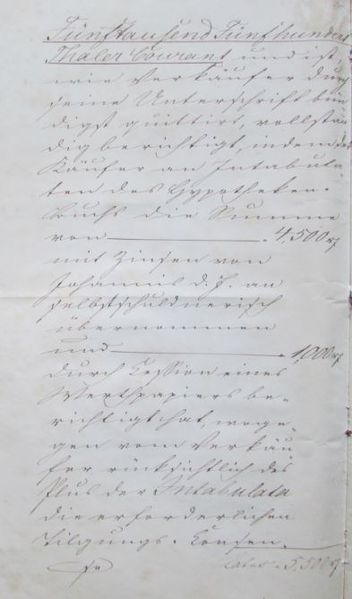 Fünftausend Fünfhundert
Thaler Courant und ist,
wie Verkäufer durch
seine Unterschrift bün-
digst quittirt, vollstän-
dig berichtigt, indem der
Käufer an Intabula-
ten des Hypotheken-
buchs die Summe
von 4,500 rf
mit Zinsen von
Johannis d. J. an
selbstschuldnerisch
übernommen
und 1,000 rf
durch Cession eines
Werthpapiers be-
richtigt hat, woge-
gen vom Verkäu-
fer rücksichtlich des
Plus der Intabulata
die erforderlichen
Tilgungs-Consen-
se 5,500 rf